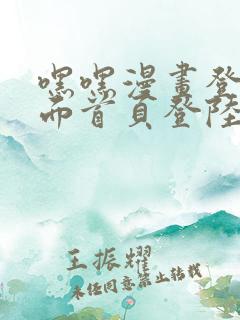 嘿嘿漫畫登
而首頁登陸
王振耀
未经同意禁止转载